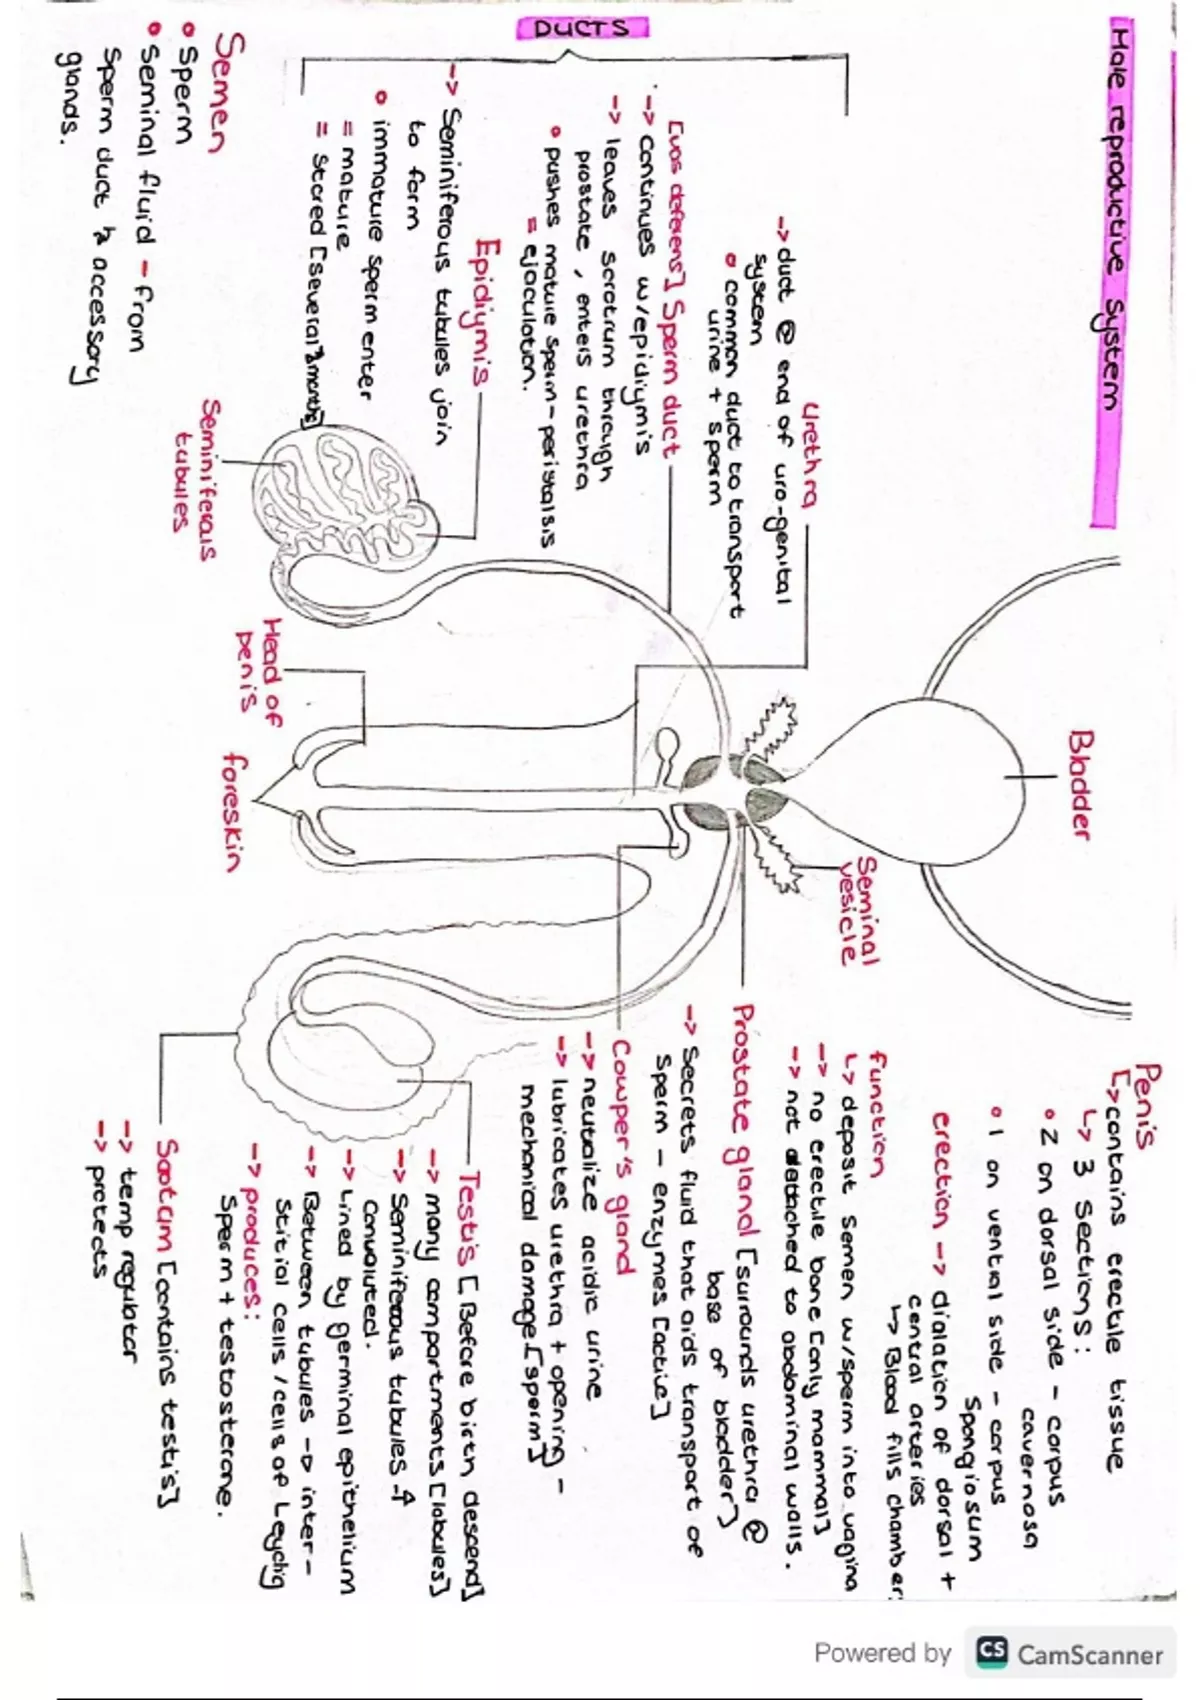 Male reproductive system
DUCTS
Urethra
-> duct @ end of uro-genital
system
• common duct to transport
urine + sperm
[vas deferens] Sperm duct
-> continues w/epidiymis
-> leaves scrotum through
prostate, enters urethra
• pushes mature sperm - peristalsis
= ejaculation.
Epidiymis
-> Seminiferous tubules join
to form
• immature sperm enter
= mature
= Stored [several months]
Semen
• Sperm
• Seminal fluid - from
sperm duct & accessory
glands.
Seminiferous
tubules
Head of
penis
foreskin
Bladder
Seminal
vesicle
Penis
↳ contains erectile tissue
↳ 3 sections:
• 2 on dorsal side - corpus
cavernosa
• 1 on ventral side - corpus
Spongiosum
erection -> dialation of dorsal +
central arteries
↳ Blood fills chamber
function
↳ deposit semen w/sperm into vagina
-> no erectile bone [only mammal]
-> not detached to abdominal walls.
Prostate gland [surrounds urethra @
base of bladder]
-> Secrets fluid that aids transport of
Sperm - enzymes [actie]
Cowper's gland
-> neutralize acidic urine
-> lubricates urethra + opening -
mechanical damage [sperm]
Testis [Before birth descend]
-> many compartments [lobules]
-> Seminiferous tubules -4
Convoluted.
-> Lined by germinal epithelium
-> Between tubules -> inter-
Stitial cells / cells of Leydig
-> produces:
Sperm + testosterone.
Scotum [contains testis]
-> temp regulator
-> protects
Powered by CS CamScanner